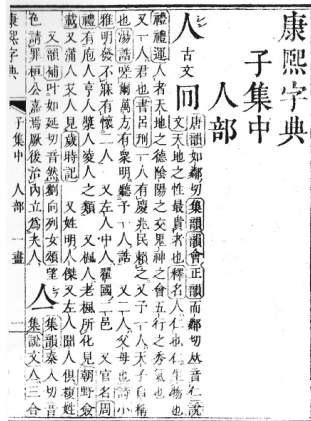 康熙字典
子集中
人部
人 古文
唐韻如鄰切集韻韻會正韻而鄰切𠀤音仁說
文天地之性最貴者也釋名人仁也仁生物也
禮禮運人者天地之德陰陽之交鬼神之會五行之秀氣也
又一人君也書呂刑一人有慶兆民賴之又予一人天子自稱
也湯誥嗟爾萬方有眾明聽予一人誥 又二人父母也詩小
雅明發不寐有懷二人 又左人中人翟國二邑 又官名周
禮有庖人亨人漿人凌人之類 又楓人老楓所化見朝野僉
載又蒲人艾人見歲時記 又姓明人傑又左人聞人俱複姓
又韻補叶如延切音然劉向列女頌望
色請罪桓公嘉焉厥後治內立爲夫人
亼
集韻秦入切音
集說文人三合
康熙字典 子集中 人部 一畫 二